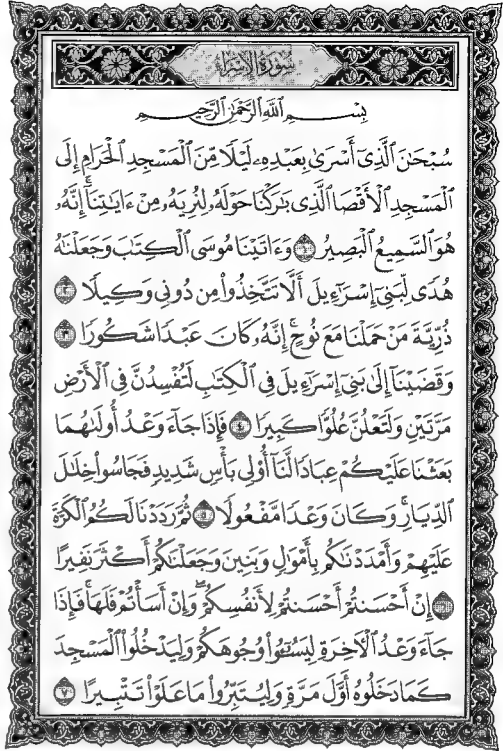 سُورَةُ الإِسْرَاءِ
بِسْمِ اللَّهِ الرَّحْمَٰنِ الرَّحِيمِ
سُبْحَٰنَ ٱلَّذِىٓ أَسْرَىٰ بِعَبْدِهِۦ لَيْلًا مِّنَ ٱلْمَسْجِدِ ٱلْحَرَامِ إِلَى
ٱلْمَسْجِدِ ٱلْأَقْصَا ٱلَّذِى بَٰرَكْنَا حَوْلَهُۥ لِنُرِيَهُۥ مِنْ ءَايَٰتِنَآ ۚ إِنَّهُۥ
هُوَ ٱلسَّمِيعُ ٱلْبَصِيرُ ١ وَءَاتَيْنَا مُوسَى ٱلْكِتَٰبَ وَجَعَلْنَٰهُ
هُدًى لِّبَنِىٓ إِسْرَٰٓءِيلَ أَلَّا تَتَّخِذُوا۟ مِن دُونِى وَكِيلًا ٢
ذُرِّيَّةَ مَنْ حَمَلْنَا مَعَ نُوحٍ ۚ إِنَّهُۥ كَانَ عَبْدًا شَكُورًا ٣
وَقَضَيْنَآ إِلَىٰ بَنِىٓ إِسْرَٰٓءِيلَ فِى ٱلْكِتَٰبِ لَتُفْسِدُنَّ فِى ٱلْأَرْضِ
مَرَّتَيْنِ وَلَتَعْلُنَّ عُلُوًّا كَبِيرًا ٤ فَإِذَا جَآءَ وَعْدُ أُولَىٰهُمَا
بَعَثْنَا عَلَيْكُمْ عِبَادًا لَّنَآ أُو۟لِى بَأْسٍ شَدِيدٍ فَجَاسُوا۟ خِلَٰلَ
ٱلدِّيَارِ ۚ وَكَانَ وَعْدًا مَّفْعُولًا ٥ ثُمَّ رَدَدْنَا لَكُمُ ٱلْكَرَّةَ
عَلَيْهِمْ وَأَمْدَدْنَٰكُم بِأَمْوَٰلٍ وَبَنِينَ وَجَعَلْنَٰكُمْ أَكْثَرَ نَفِيرًا
٦ إِنْ أَحْسَنتُمْ أَحْسَنتُمْ لِأَنفُسِكُمْ ۖ وَإِنْ أَسَأْتُمْ فَلَهَا ۚ فَإِذَا
جَآءَ وَعْدُ ٱلْءَاخِرَةِ لِيَسُۥٓـُٔوا۟ وُجُوهَكُمْ وَلِيَدْخُلُوا۟ ٱلْمَسْجِدَ
كَمَا دَخَلُوهُ أَوَّلَ مَرَّةٍ وَلِيُتَبِّرُوا۟ مَا عَلَوْا۟ تَتْبِيرًا ٧